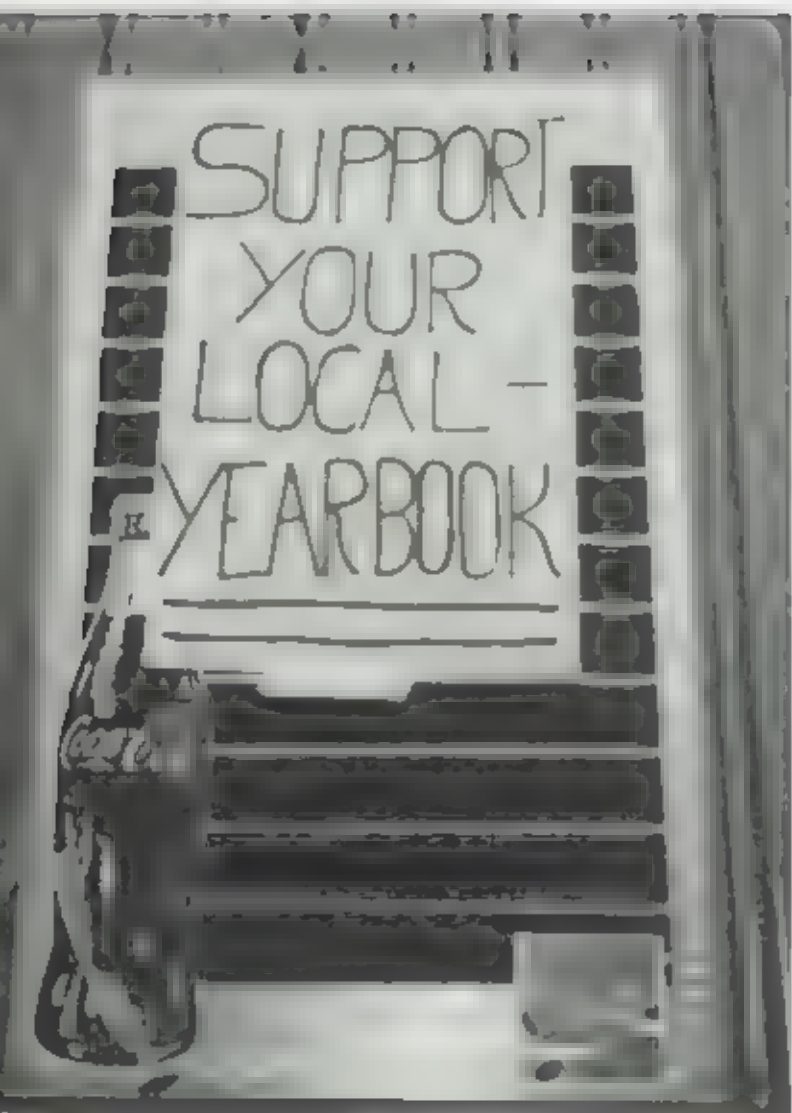 SUPPORT
YOUR
LOCAL-
YEARBOOK